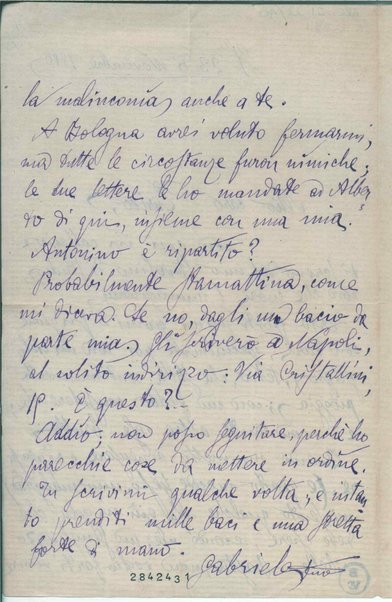 la malinconia, anche a te.
A Bologna avrei voluto fermarmi,
ma tutte le circostanze furon nimiche;
le tue lettere le ho mandate ad Alfre-
do di qui, insieme con una mia.
Antonino è ripartito?
Probabilmente stamattina, come
mi diceva. Se no, dagli un bacio da
parte mia. Gli scriverò a Napoli,
al solito indirizzo: Via Cristallini,
19. È questo?
Addio; non posso seguitare, perchè ho
parecchie cose da mettere in ordine.
Tu scrivimi qualche volta; e intan-
to prenditi mille baci e una stretta
forte di mano.
Gabriele tuo
2842431